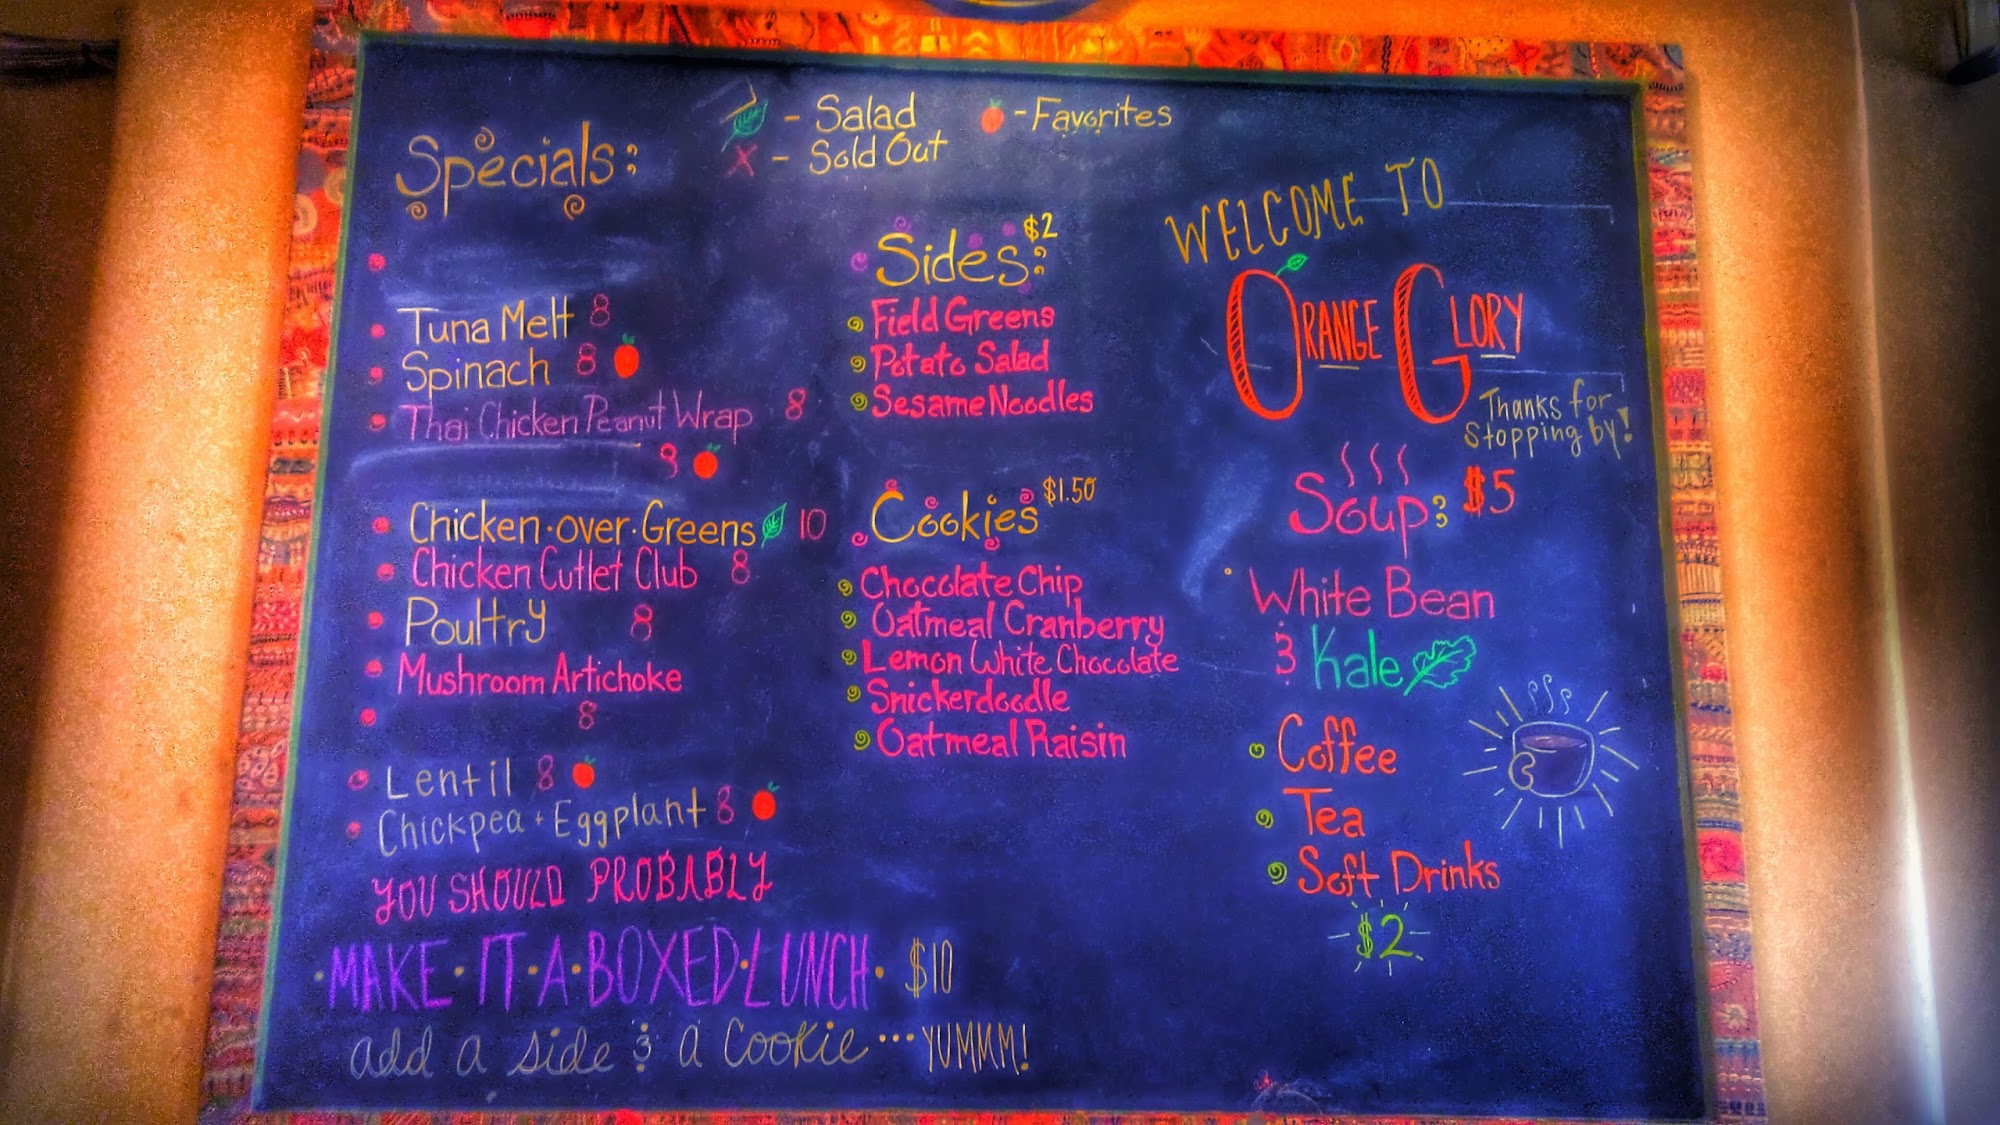 - Salad
- Favorites
X - Sold Out
Specials:
Tuna Melt 8
Spinach 8
Thai Chicken Peanut Wrap 8
9
Chicken·over·Greens 10
Chicken Cutlet Club 8
Poultry 8
Mushroom Artichoke
8
Lentil 8
Chickpea + Eggplant 8
YOU SHOULD PROBABLY
·MAKE·IT·A·BOXED·LUNCH· $10
add a side & a cookie ... YUMMM!
Sides: $2
Field Greens
Potato Salad
Sesame Noodles
Cookies $1.50
Chocolate Chip
Oatmeal Cranberry
Lemon White Chocolate
Snickerdoodle
Oatmeal Raisin
WELCOME TO
ORANGE GLORY
Thanks for
stopping by!
Soup: $5
White Bean
& Kale
Coffee
Tea
Soft Drinks
$2